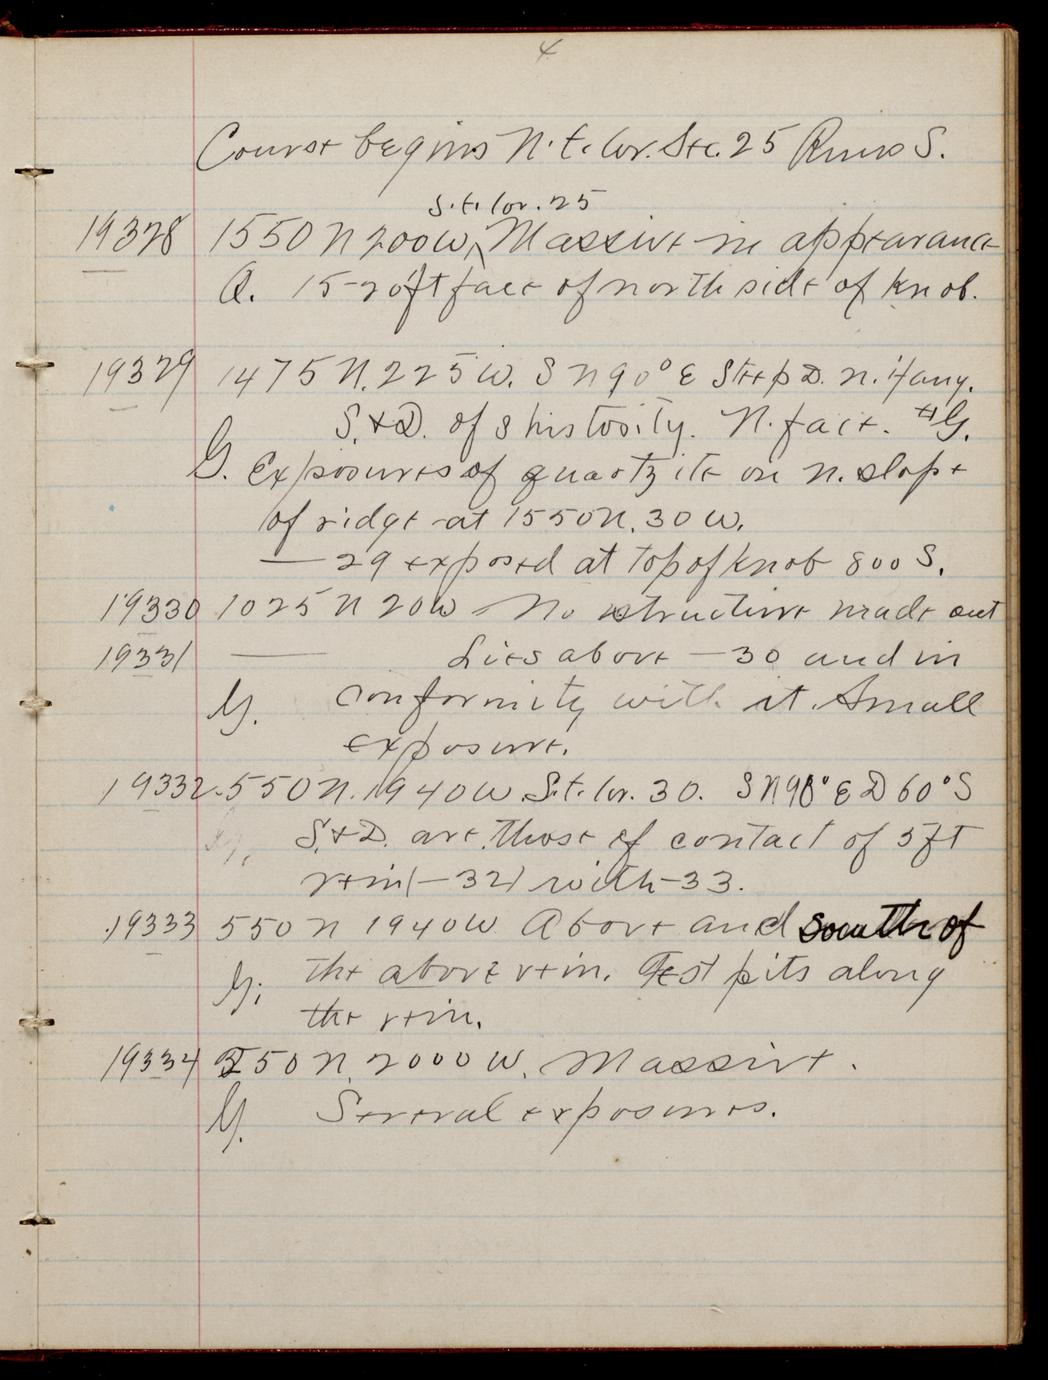 4
Course begins N.E. Cor. Sec. 25 Runs S.
S.E. Cor. 25
19328 1550 N 200 W, Massive in appearance
Q. 15-20 ft face of north side of knob.
19329 1475 N. 225 W. S N 90° E Steep D. N. if any.
S. & D. of shistosity. N. face.
G. Exposures of quartzite on N. slope
of ridge at 1550 N. 30 W.
— 29 exposed at top of knob 800 S.
19330 1025 N 20 W No structure made out
19331 —— Lies above —30 and in
G. conformity with it. Small
exposure.
19332. 550 N. 1940 W S.E. Cor. 30. S N 90° E D 60° S
G. S. & D. are those of contact of 5 ft
vein (—32) with —33.
19333 550 N 1940 W Above and south of
G. the above vein. Test pits along
the vein.
19334 550 N. 2000 W. Massive.
G. Several exposures.